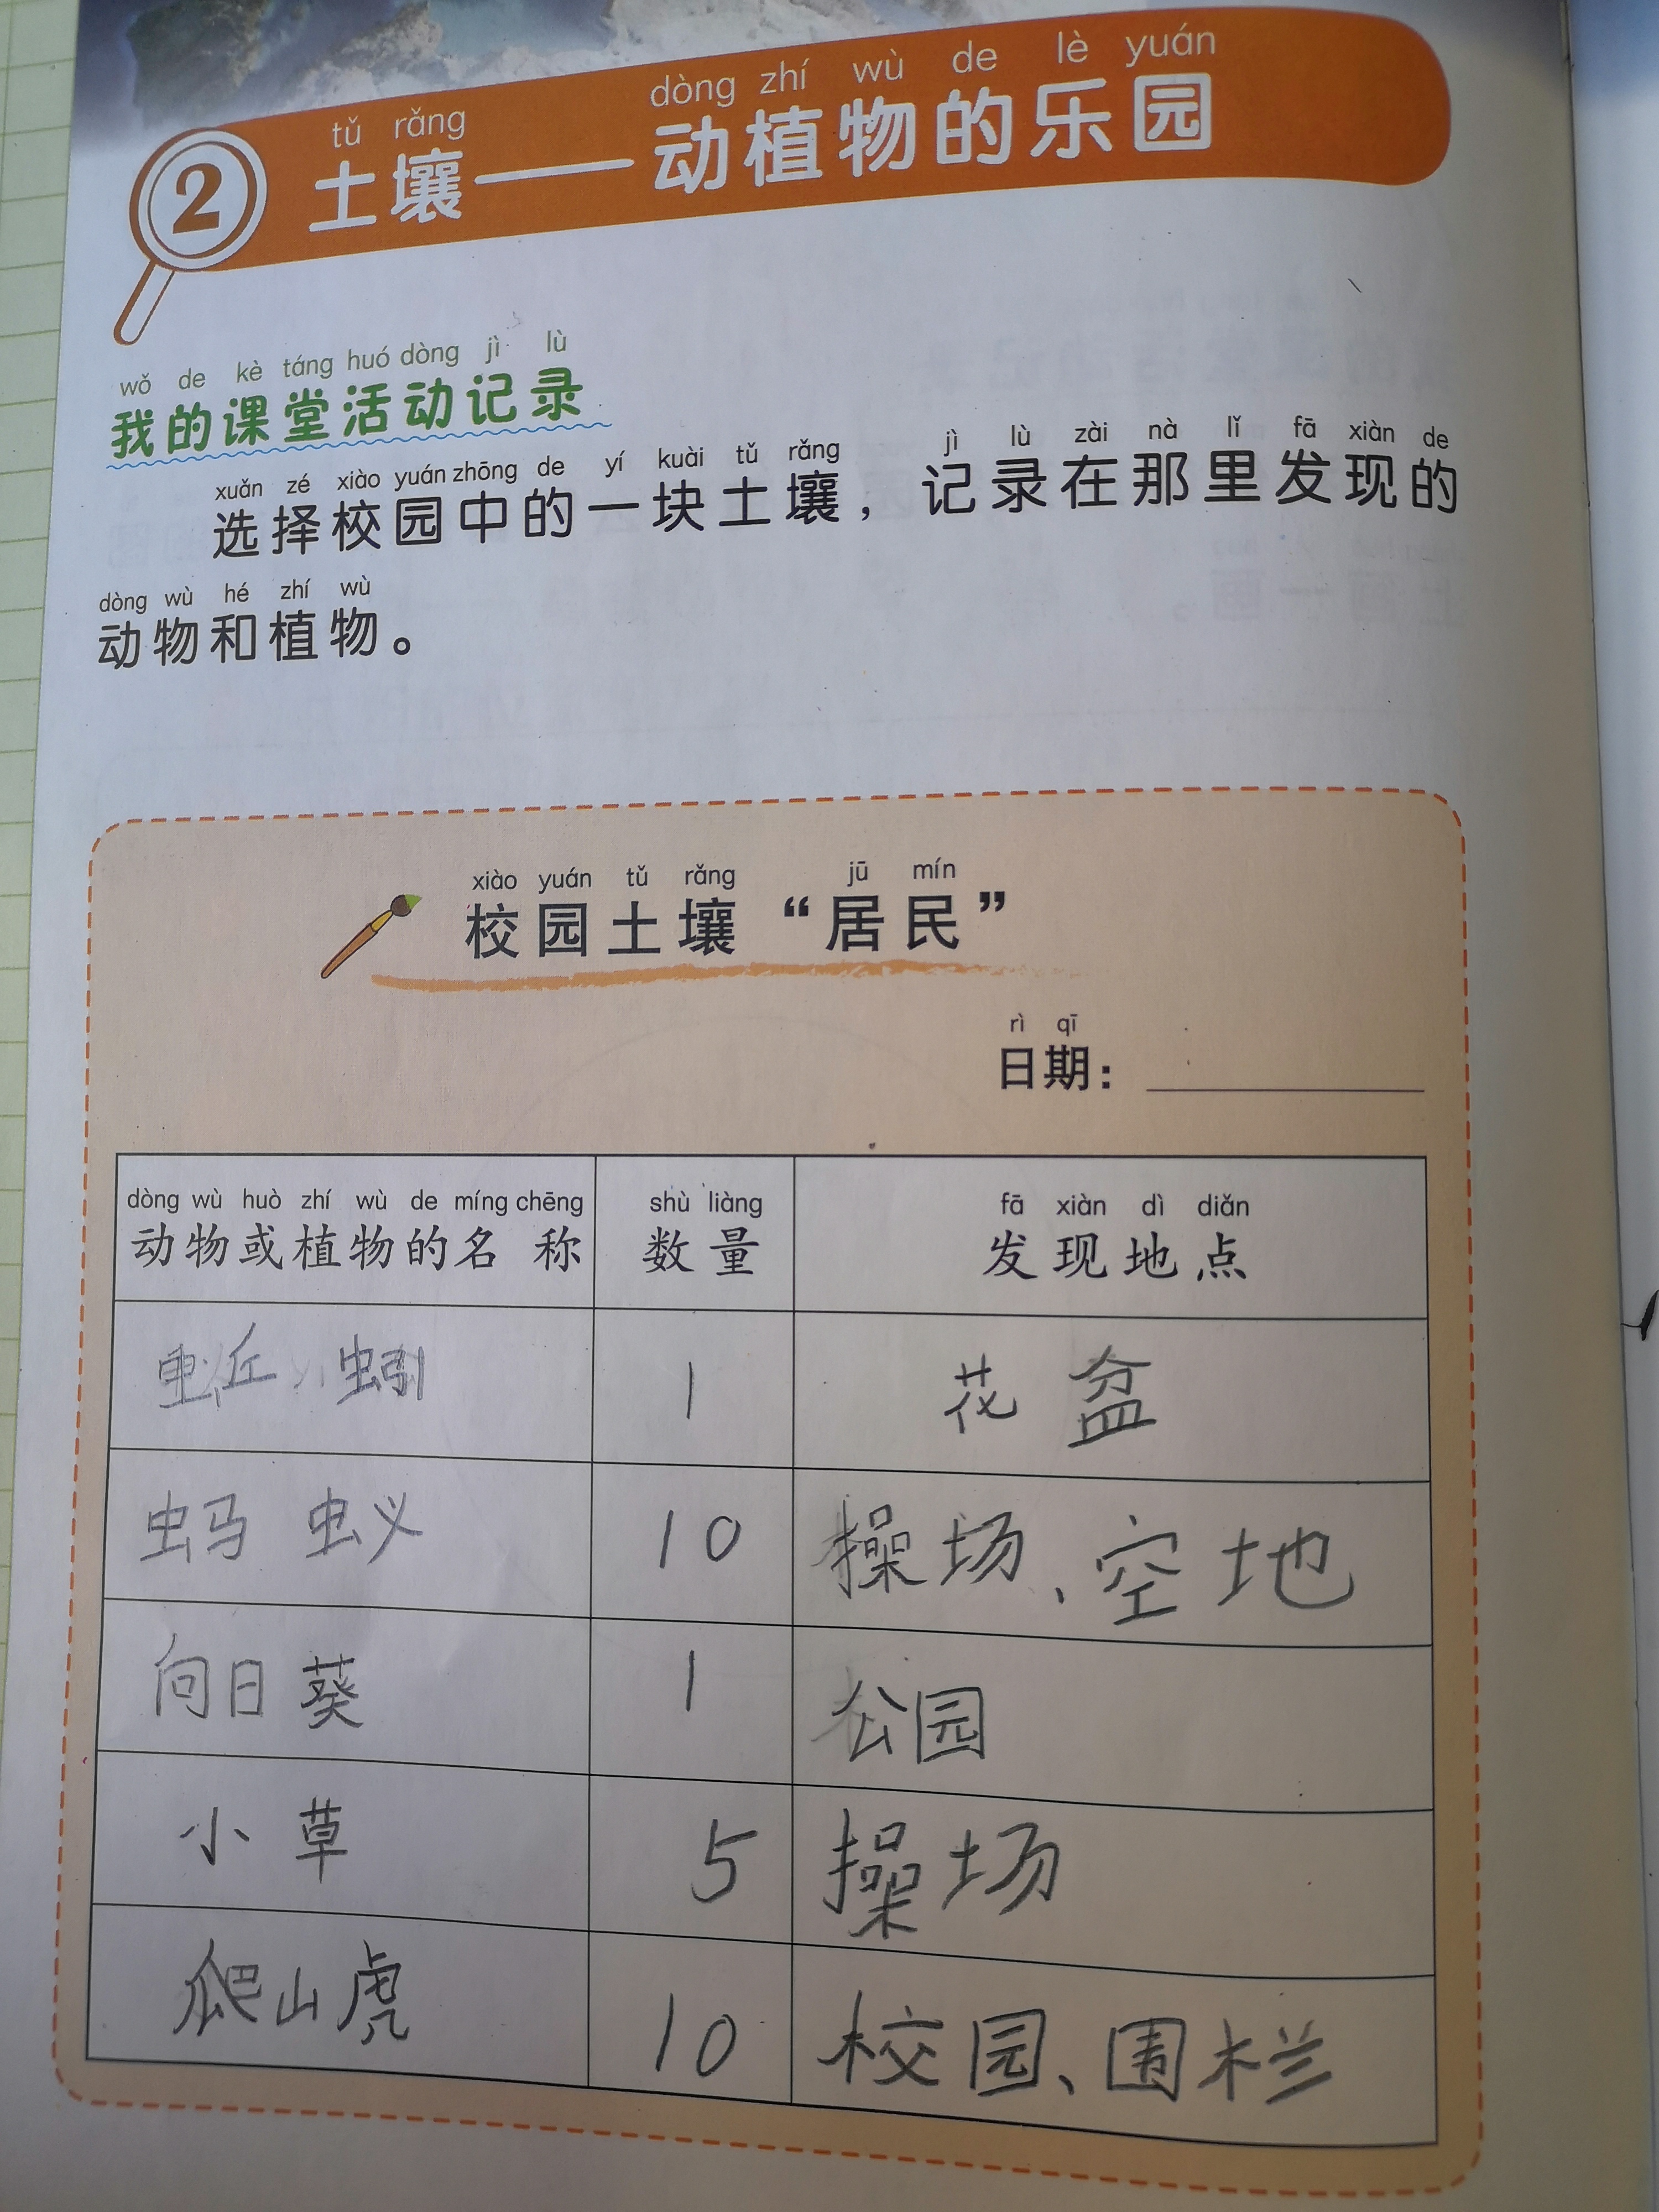 dòng zhí wù de lè yuán
tǔ rǎng
2 土壤——动植物的乐园
wǒ de kè táng huó dòng jì lù
我的课堂活动记录
xuǎn zé xiào yuán zhōng de yí kuài tǔ rǎng jì lù zài nà lǐ fā xiàn de
选择校园中的一块土壤，记录在那里发现的
dòng wù hé zhí wù
动物和植物。
xiào yuán tǔ rǎng jū mín
校园土壤“居民”
rì qī
日期：
dòng wù huò zhí wù de míng chēng shù liàng fā xiàn dì diǎn
动物或植物的名称 数量 发现地点
蚯蚓 1 花盆
蚂蚁 10 操场、空地
向日葵 1 公园
小草 5 操场
爬山虎 10 校园、围栏